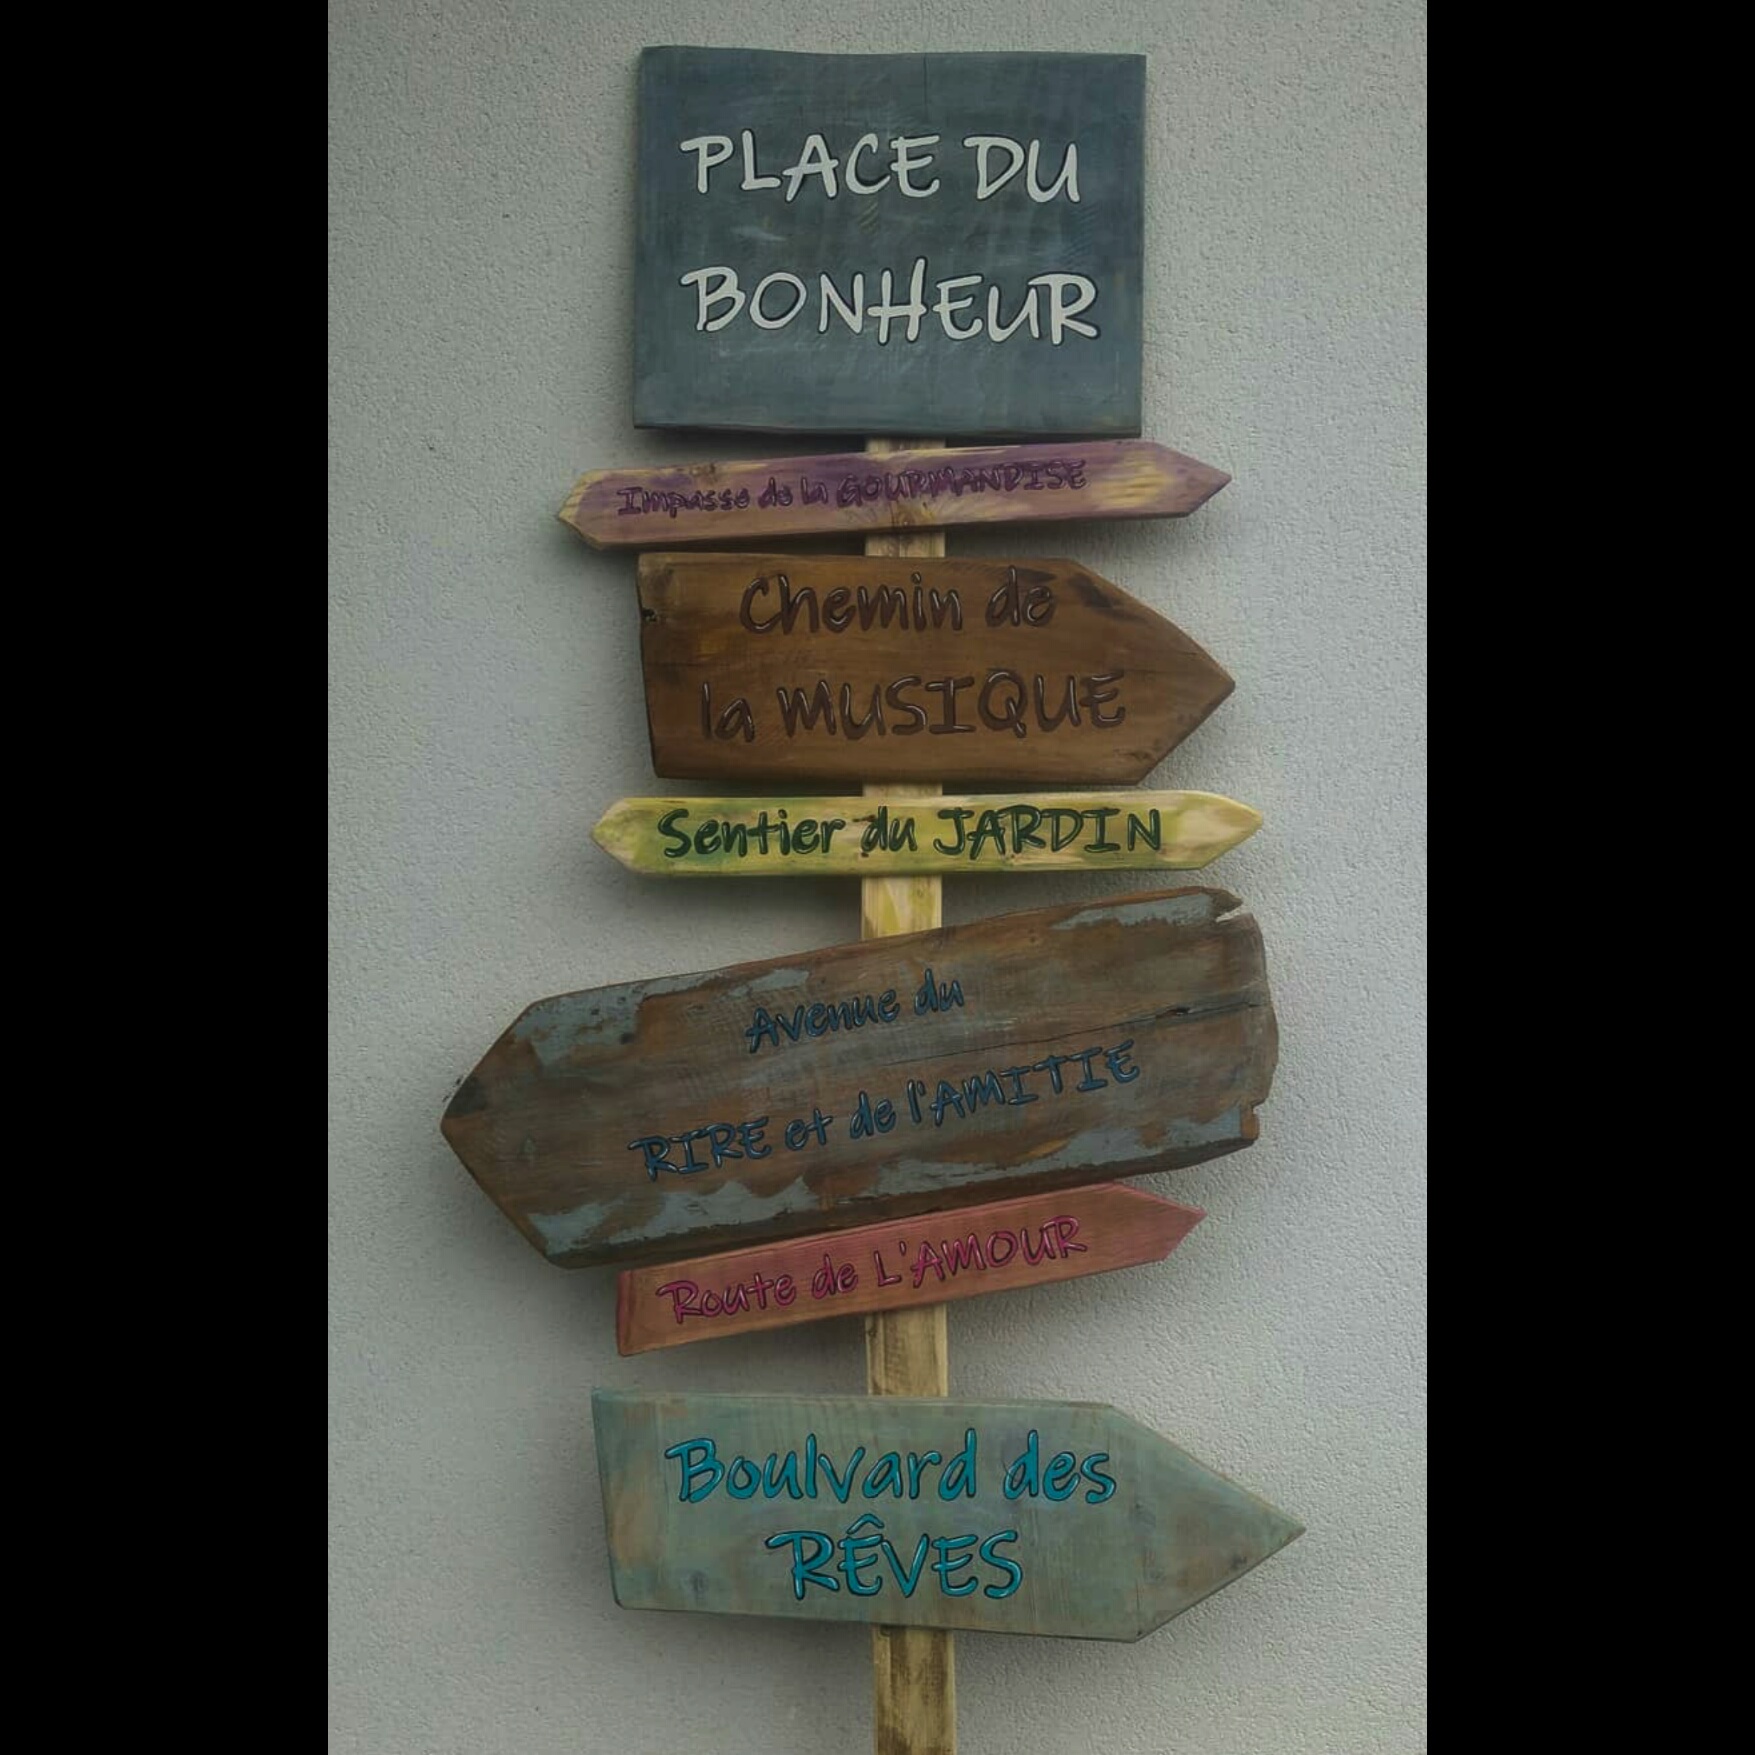 PLACE DU
BONHEUR
Impasse de la GOURMANDISE
Chemin de
la MUSIQUE
Sentier du JARDIN
Avenue du
RIRE et de l'AMITIE
Route de L'AMOUR
Boulvard des
RÊVES